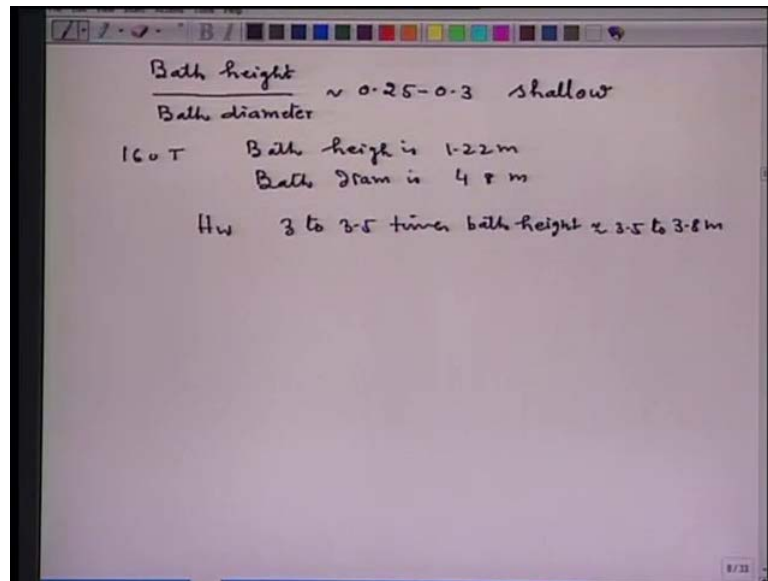 Bath height
Bath diameter ~ 0.25-0.3 shallow
160 T Bath heigh is 1.22m
Bath diam is 4 8 m
Hw 3 to 3.5 times bath height ~ 3.5 to 3.8m
8/33